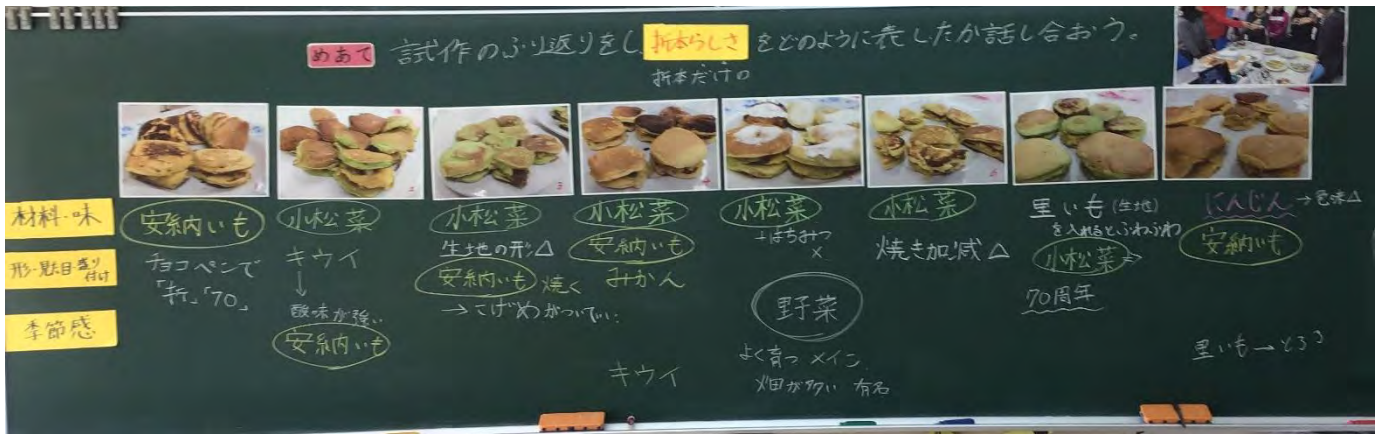 めあて 試作のふり返りをし、折本らしさをどのように表したか話し合おう。
折本だけの
材料・味
形・見た目・盛り付け
季節感
安納いも
チョコペンで
「折」「70」
小松菜
キウイ
↓
酸味が強い
安納いも
小松菜
生地の形△
安納いも 焼く
→こげめがついてい
小松菜
安納いも
みかん
キウイ
小松菜
+はちみつ
×
野菜
よく育つ メイン
畑が多い 有名
小松菜
焼き加減△
里いも(生地)
を入れるとふわふわ
小松菜
70周年
にんじん→色味△
安納いも
里いも→とろろ